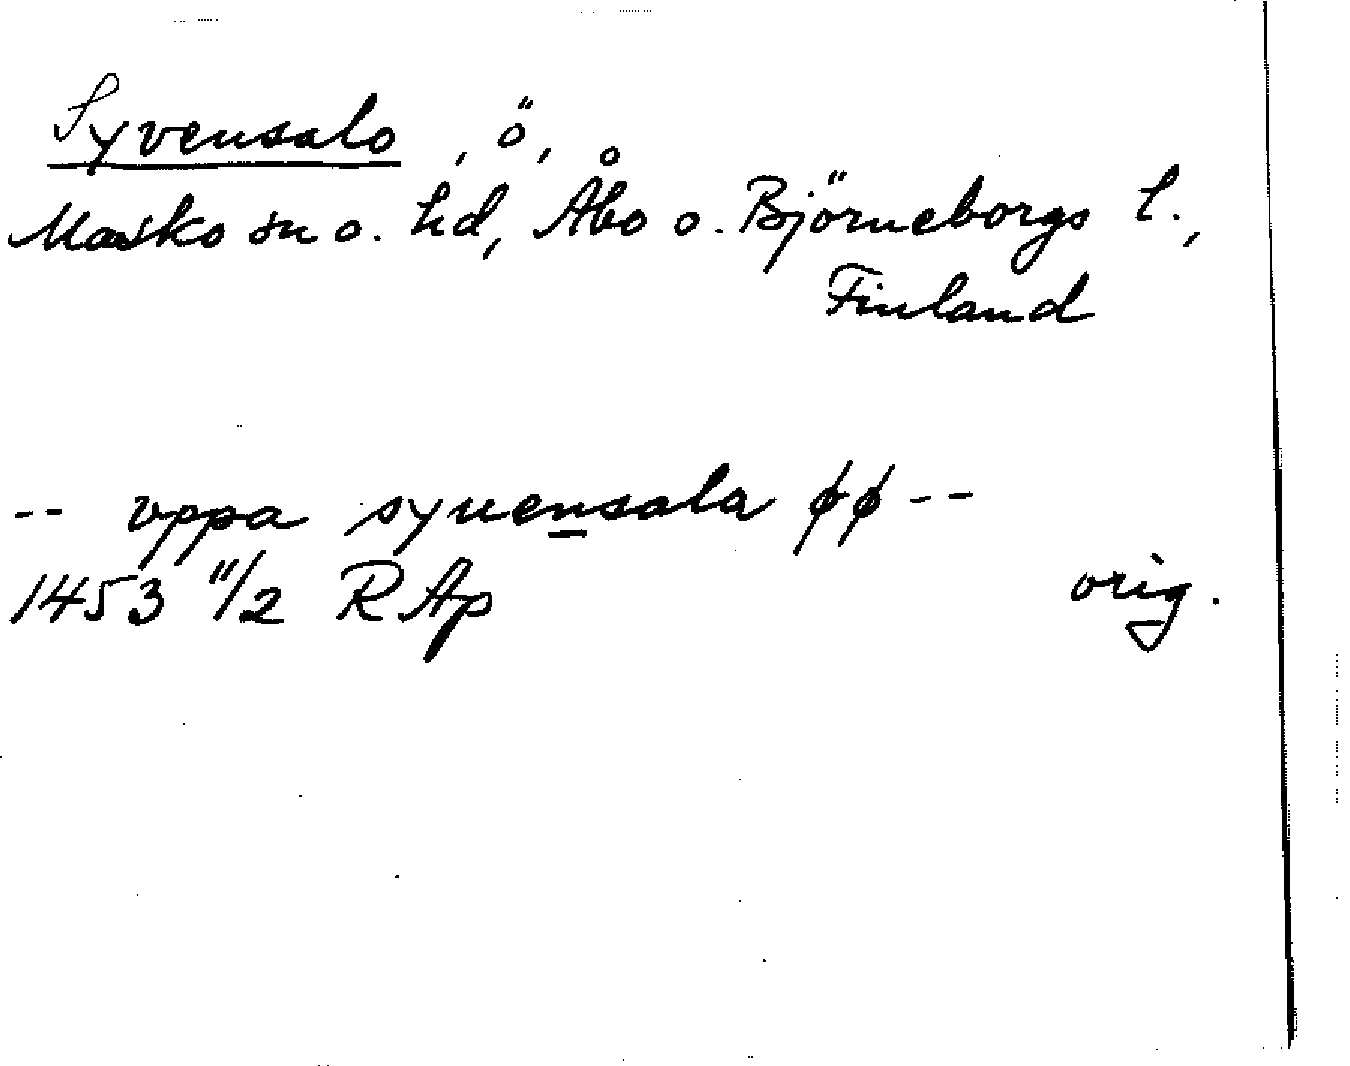 Syvensalo, ö,
Masko sn o. hd, Åbo o. Björneborgs l.,
Finland
-- vppa syuensala øø --
1453 11/2 RAp orig.